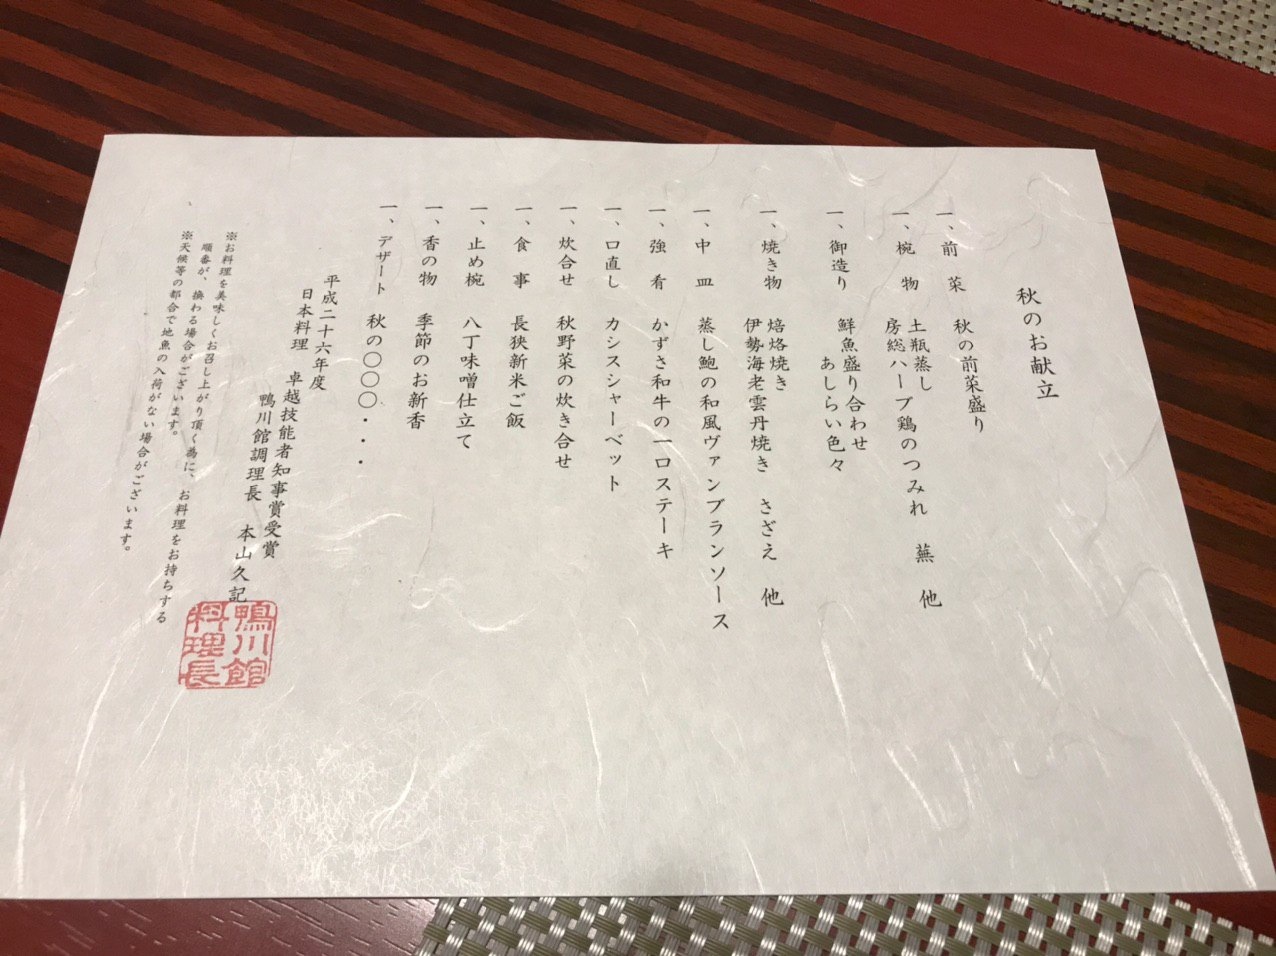 秋のお献立
一、前　菜　秋の前菜盛り
一、椀　物　土瓶蒸し
房総ハーブ鶏のつみれ　蕪　他
一、御造り　鮮魚盛り合わせ
あしらい色々
一、焼き物　焙烙焼き
伊勢海老雲丹焼き　さざえ　他
一、中　皿　蒸し鮑の和風ヴァンブランソース
一、強　肴　かずさ和牛の一口ステーキ
一、口直し　カシスシャーベット
一、炊合せ　秋野菜の炊き合せ
一、食　事　長狭新米ご飯
一、止め椀　八丁味噌仕立て
一、香の物　季節のお新香
一、デザート　秋の〇〇〇・・・
平成二十六年度
日本料理　卓越技能者知事賞受賞
鴨川館調理長　本山久記
鴨川館
料理長
※お料理を美味しくお召し上がり頂く為に、お料理をお持ちする
順番が、換わる場合がございます。
※天候等の都合で地魚の入荷がない場合がございます。